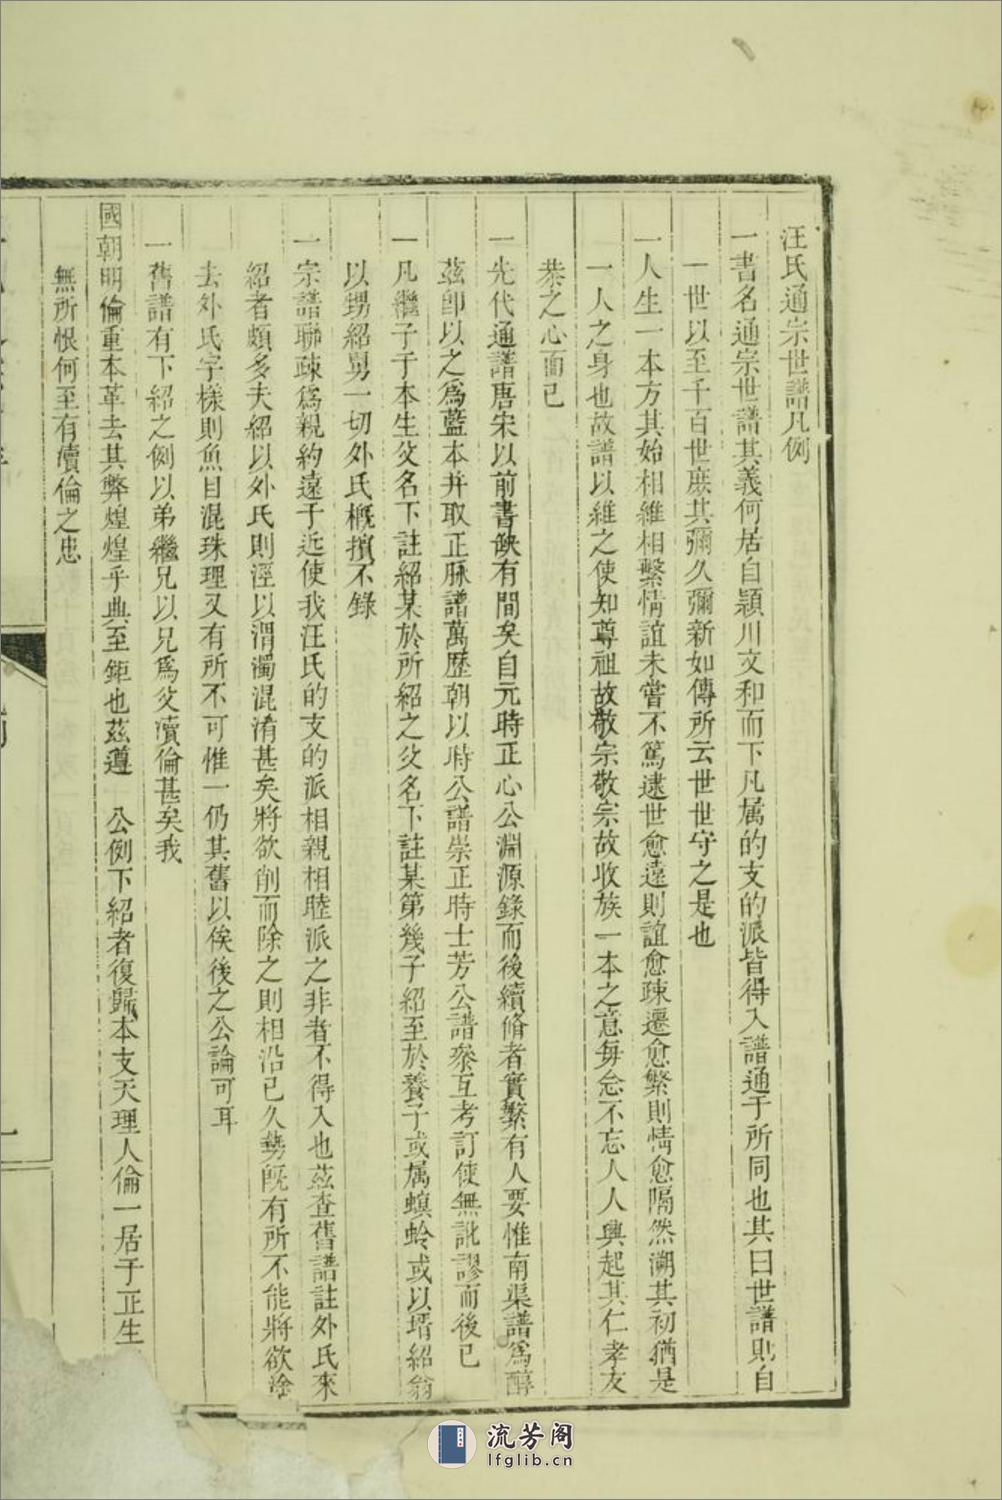 汪氏通宗世譜凡例
一書名通宗世譜其義何居自潁川文和而下凡属的支的派皆得入譜通于所同也其曰世譜則自
一世以至千百世庶其彌久彌新如傳所云世世守之是也
一人生一本方其始相維相繫情誼未嘗不篤逮世愈遠則誼愈疎遷愈繁則情愈隔然溯其初猶是
一人之身也故譜以維之使知尊祖故敬宗敬宗故收族一本之意每念不忘人人興起其仁孝友
恭之心而已
一先代通譜唐宋以前書缺有間矣自元時正心公淵源錄而後續脩者實繁有人要惟南渠譜爲醇
茲卽以之爲藍本并取正脉譜萬歷朝以時公譜崇正時士芳公譜叅互考訂使無訛謬而後已
一凡繼子于本生父名下註紹某於所紹之父名下註某第幾子紹至於養子或属螟蛉或以壻紹翁
以甥紹舅一切外氏概擯不錄
一宗譜聯疎爲親約遠于近使我汪氏的支的派相親相睦派之非者不得入也茲查舊譜註外氏來
紹者頗多夫紹以外氏則涇以渭濁混淆甚矣將欲削而除之則相沿已久勢旣有所不能將欲塗
去外氏字樣則魚目混珠理又有所不可惟一仍其舊以俟後之公論可耳
一舊譜有下紹之例以弟繼兄以兄爲父瀆倫甚矣我
國朝明倫重本革去其弊煌煌乎典至鉅也茲遵　公例下紹者復歸本支天理人倫一居于正生
無所恨何至有瀆倫之患
流芳阁
lfglib.cn